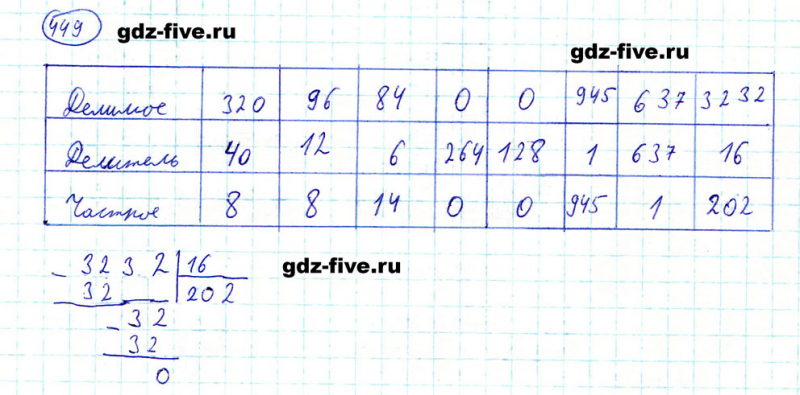 449 gdz-five.ru
gdz-five.ru
Делимое 320 96 84 0 0 945 637 3232
Делитель 40 12 6 264 128 1 637 16
Частное 8 8 14 0 0 945 1 202
- 3232 16
32 202
gdz-five.ru
- 32
32
0